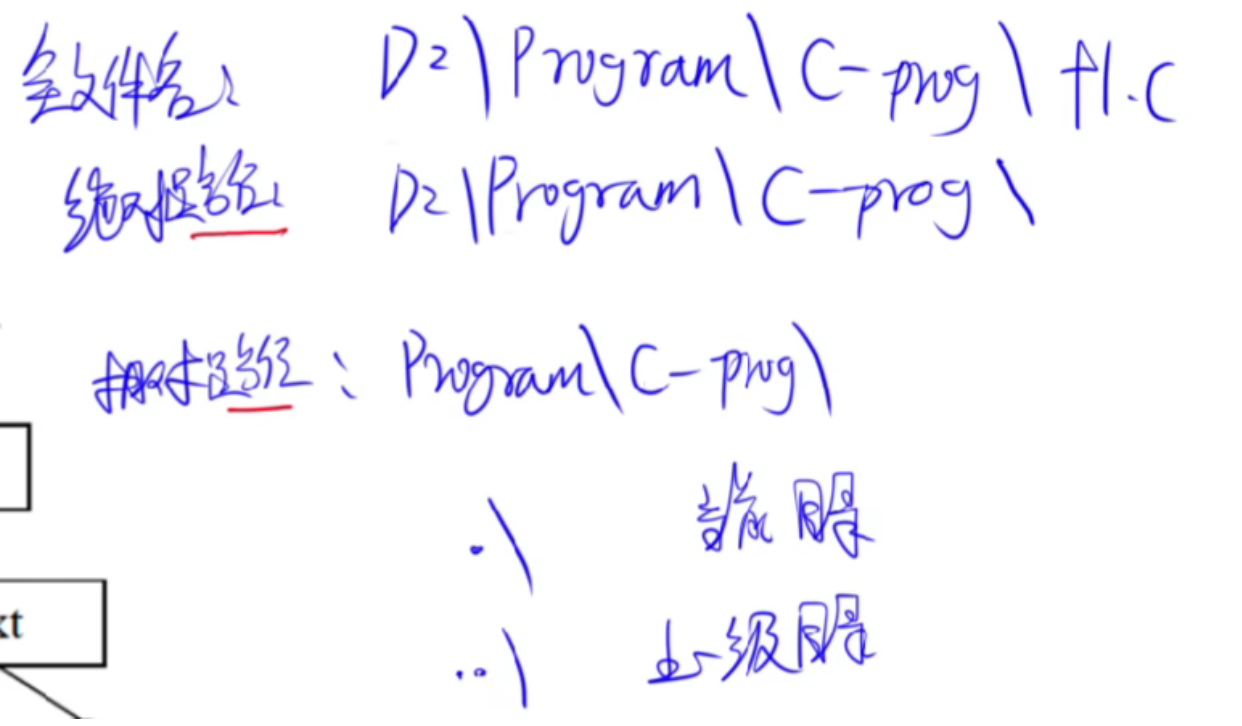 全文件名: D:\Program\C-prog\f1.c
绝对路径: D:\Program\C-prog\
相对路径: Program\C-prog\
.\ 当前目录
..\ 上一级目录
xt